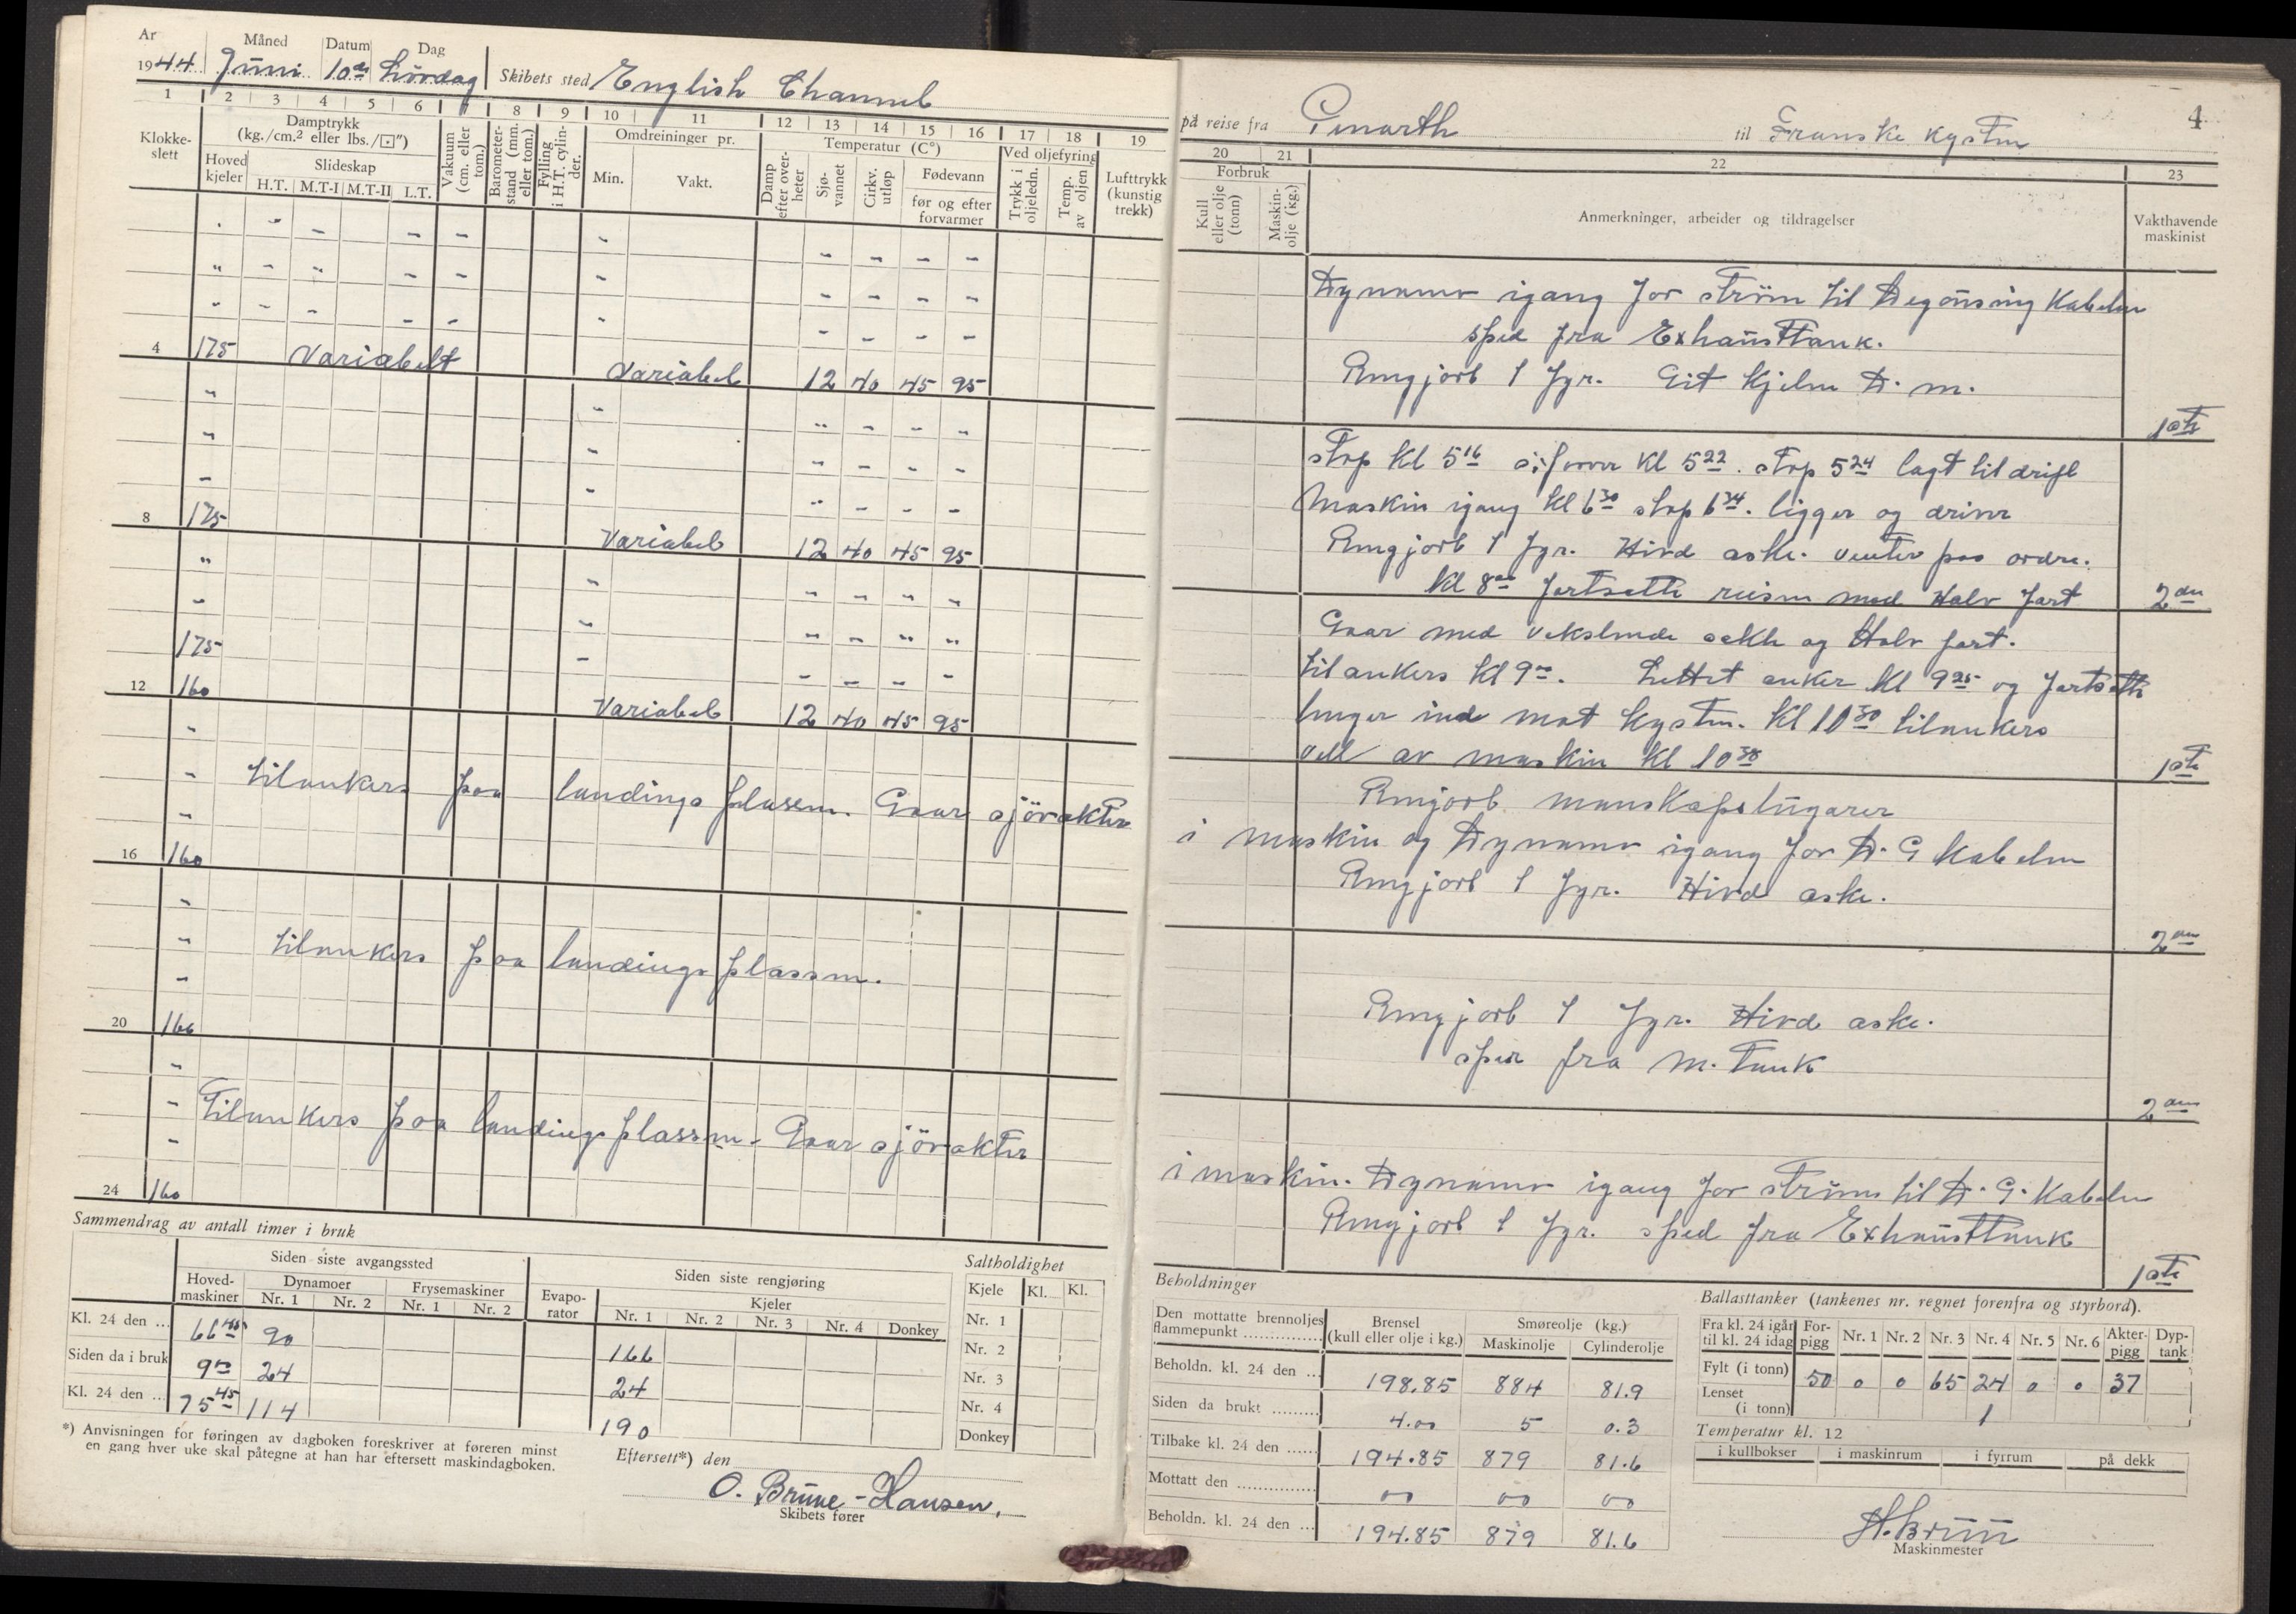 Ar Måned Datum Dag
1944 Juni 10de Lördag Skibets sted English Channel
1 2 3 4 5 6 7 8 9 10 11 12 13 14 15 16 17 18 19
Klokke-slett
Damptrykk (kg./cm.² eller lbs./⊡″)
Hoved kjeler
Slideskap
H.T. M.T-I M.T-II L.T.
Vakuum (cm. eller tom.)
Barometer-stand (mm. eller tom.)
Fylling i H.T. cylin-der.
Omdreininger pr.
Min. Vakt.
Temperatur (C°)
Damp efter over-heter
Sjø-vannet
Cirkv. utløp
Fødevann
før og efter forvarmer
Ved oljefyring
Trykk i oljeledn.
Temp. av oljen
Lufttrykk (kunstig trekk)
4 175 Variabelt Variabel 12 40 45 95
8 175 Variabel 12 40 45 95
175
12 160 Variabel 12 40 45 95
tilankers paa landings plassen. Gaar sjövakter
16 160
tilankers paa landings plassen.
20 160
Tilankers paa landings plassen - Gaar sjövakter
24 160
Sammendrag av antall timer i bruk
Siden siste avgangssted
Siden siste rengjøring
Hoved-maskiner
Dynamoer
Nr. 1 Nr. 2
Frysemaskiner
Nr. 1 Nr. 2
Evapo-rator
Kjeler
Nr. 1 Nr. 2 Nr. 3 Nr. 4 Donkey
Kl. 24 den ... 66 45 90 166
Siden da i bruk 9 00 24 24
Kl. 24 den ... 75 45 114 190
Saltholdighet
Kjele Kl. Kl.
Nr. 1
Nr. 2
Nr. 3
Nr. 4
Donkey
*) Anvisningen for føringen av dagboken foreskriver at føreren minst
en gang hver uke skal påtegne at han har eftersett maskindagboken.
Eftersett*) den
O. Brune-Hansen,
Skibets fører
4
på reise fra Penarth til Franske Kysten
20 21 22 23
Forbruk
Kull eller olje (tonn)
Maskin-olje (kg.)
Anmerkninger, arbeider og tildragelser
Vakthavende maskinist
Dynamo igang for ström til Degausing Kabelen
sped fra Exhausttank.
Rengjort 1 fyr. Git Kjelen D. m.
1ste
stop Kl 5 16 Kl 5 22. stop 5 24 lagt til drift
Maskin igang Kl 6 30 stop 6 34. ligger og driver
Rengjort 1 fyr. Hivd aske. venter paa ordre.
Kl 8 00 fortsette reisen med Halv fart
2den
Gaar med vekslende sakte og Halv fart.
til ankers Kl 9 00. Lettet anker Kl 9 25 og fortsatte
lenger ind mot Kysten. Kl 10 30 tilankers
vell av maskin Kl 10 30
1ste
Rengjort manskapslugarer
i maskin og Dynamo igang for D. G Kabelen
Rengjort 1 fyr. Hivd aske.
2den
Rengjort 1 fyr. Hivd aske.
sper fra M. Tank
2den
i maskin. Dynamo igang for ström til D. G. Kabelen
Rengjort 1 fyr. sped fra Exhausttank
1ste
Beholdninger
Den mottatte brennoljes flammepunkt
Brensel (kull eller olje i kg.)
Smøreolje (kg.)
Maskinolje Cylinderolje
Beholdn. kl. 24 den ... 198.85 884 81.9
Siden da brukt ......... 4.00 5 0.3
Tilbake kl. 24 den ...... 194.85 879 81.6
Mottatt den ............... 00 00 00
Beholdn. kl. 24 den ... 194.85 879 81.6
Ballasttanker (tankenes nr. regnet forenfra og styrbord).
Fra kl. 24 igår til kl. 24 idag
For-pigg Nr. 1 Nr. 2 Nr. 3 Nr. 4 Nr. 5 Nr. 6 Akter-pigg Dyp-tank
Fylt (i tonn) 50 0 0 65 24 0 0 37
Lenset (i tonn) 1
Temperatur kl. 12
i kullbokser i maskinrum i fyrrum på dekk
H. Bruun
Maskinmester